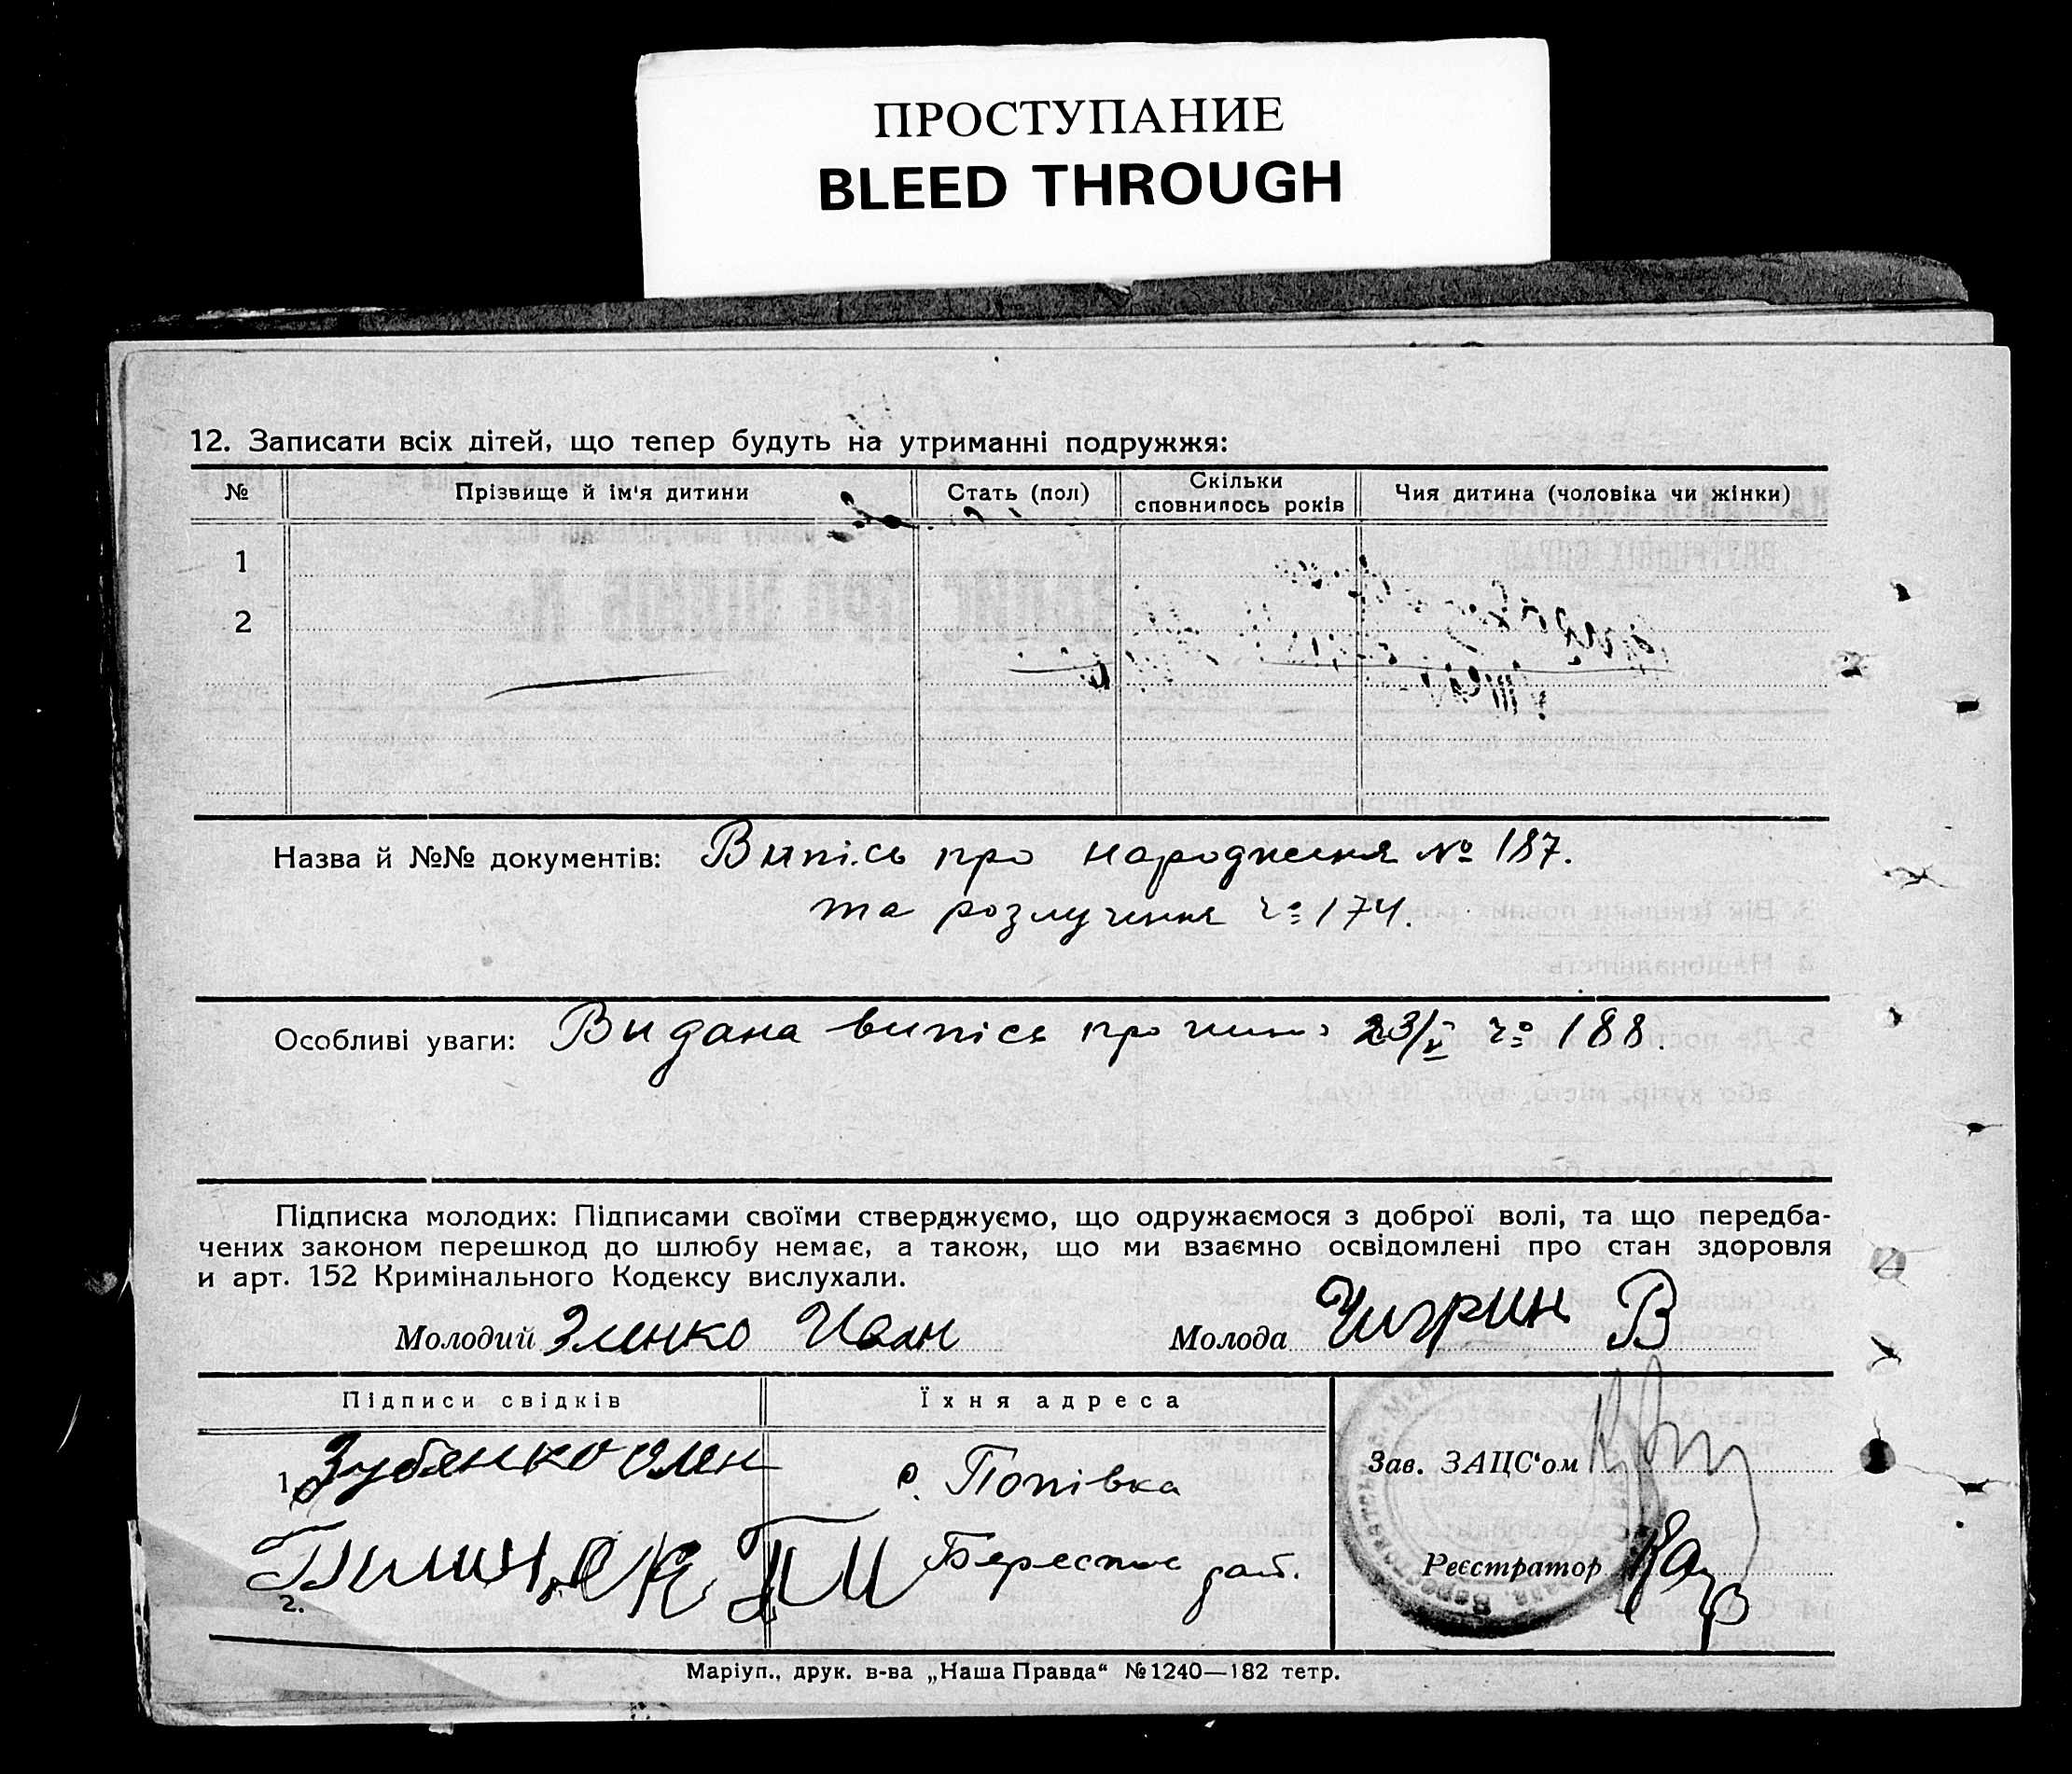 ПРОСТУПАНИЕ
BLEED THROUGH
12. Записати всіх дітей, що тепер будуть на утриманні подружжя:
№ Прізвище й ім'я дитини Стать (пол) Скільки сповнилось років Чия дитина (чоловіка чи жінки)
1
2
Назва й №№ документів: Випісь про народження № 187.
та розлучення № 174.
Особливі уваги: Видана випісь про 23/V № 188.
Підписка молодих: Підписами своїми стверджуємо, що одружаємося з доброї волі, та що передба-
чених законом перешкод до шлюбу немає, а також, що ми взаємно освідомлені про стан здоровля
и арт. 152 Кримінального Кодексу вислухали.
Молодий Зленко Иван Молода Чигрин В
Підписи свідків Їхня адреса
1. с. Попівка Зав. ЗАЦС'ом
2. Реєстратор
Маріуп., друк. в-ва „Наша Правда“ №1240—182 тетр.